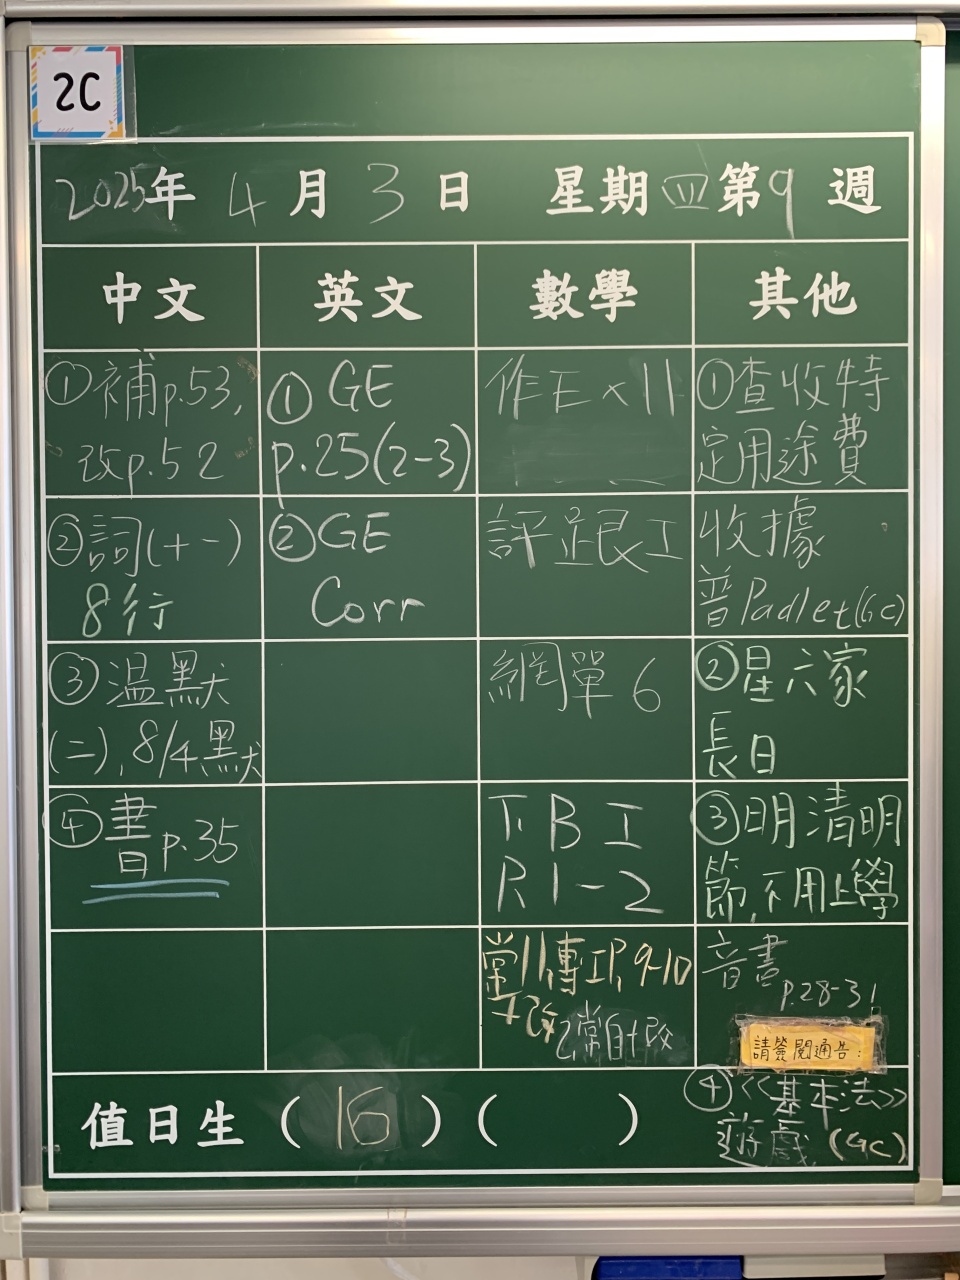 2C
2025年 4 月 3 日 星期四第9週
中文
英文
數學
其他
①補p.53,
改p.52
②詞(十一)
8行
③温默
(二), 8/4默
④書p.35
① GE
p.25(2-3)
②GE
Corr
作E×11
網單6
R1-2
①查收特
定用途費
收據
普Padlet(GC)
②星六家
長日
③明清明
節,不用上學
音書
p.28-31
請簽閱通告:
④<<基本法>>
遊戲 (GC)
值日生 (16) ( )